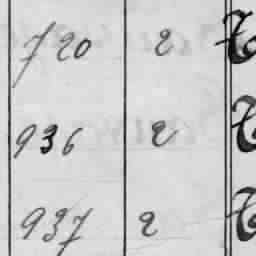 720 2
936 2
937 2